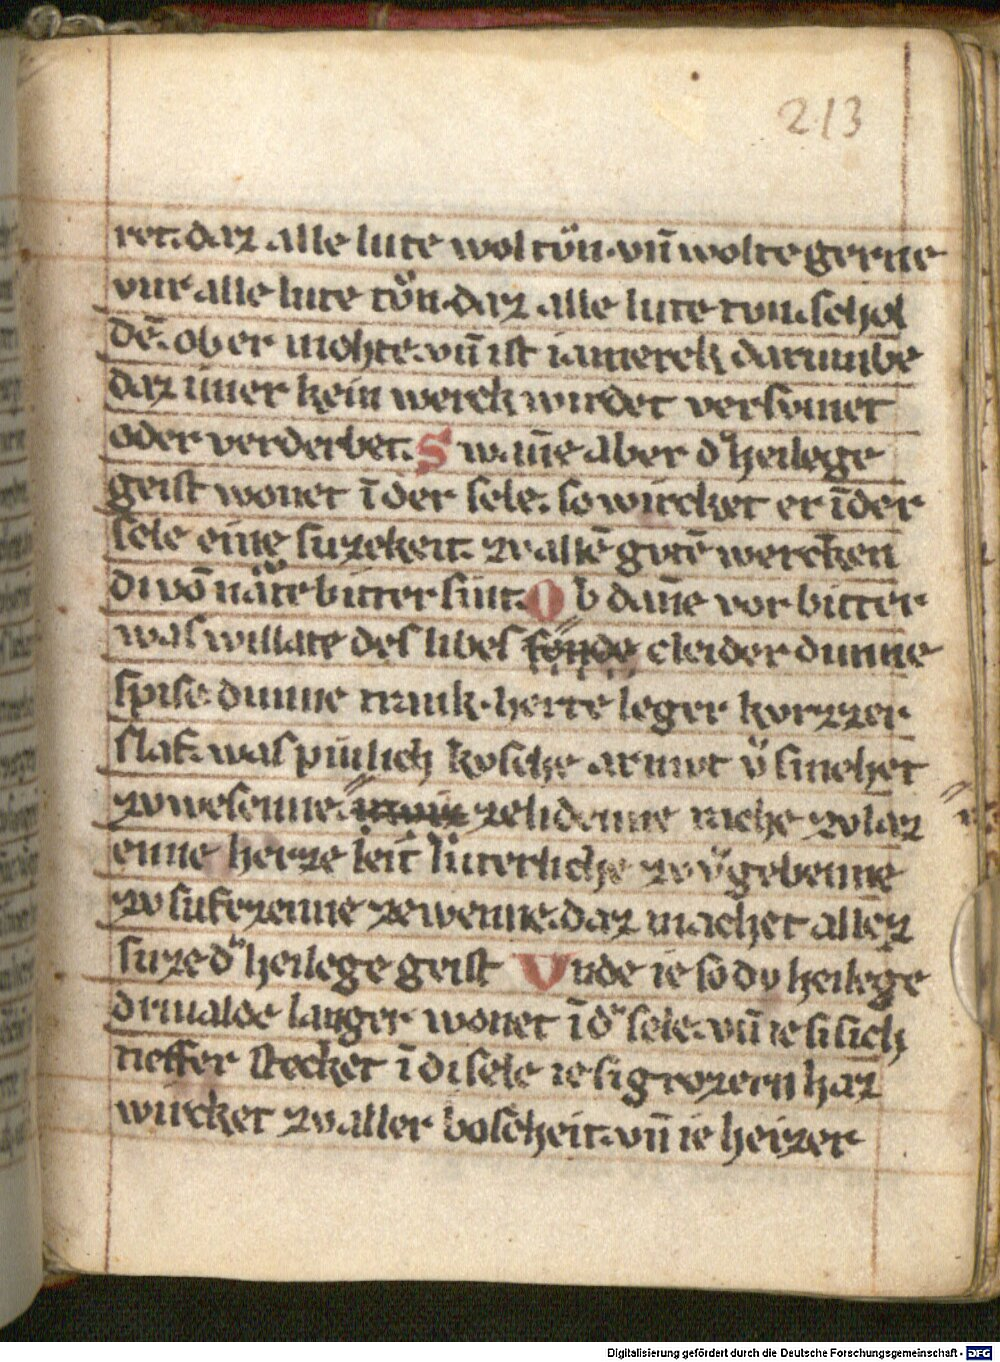 213
ret. daz alle lute wol tu̓n. vn̄ wolte gerne
vur alle lute tu̓n. daz alle lute tvn. schol
dē. ob er mohte. vn̄ ist iamerek darumbe
daz imer kein werck wirdet versvmet
oder verderbet. S wan̄e aber dˀ heilege
geist wonet ī der sele. so wircket er ī der
sele eine suzekeit. zv allē gutē wercken
di vō nature bitter sint. O b dan̄e vor bitter
was willate des libes cleider dunne
spise dunne trank. herte leger kvrzzer
slaf. was pinlich kvsche armvt vˀsmehet
zv wesenne. ze lidenne rache zv laz
enne herze leit luterliche zv vˀgebenne
zv sufzenne ze wenne. daz machet allez
suze dˀ heilege geist Vnde ie so dv heilege
drivalde langer wonet ī dˀ sele. vn̄ ie si sich
tieffer stecket ī di sele ie si grozern haz
wircket zv aller bosheit. vn̄ ie heizer
Digitalisierung gefördert durch die Deutsche Forschungsgemeinschaft - DFG